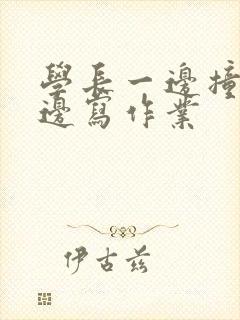 學長一邊撞
邊寫作業
伊古茲